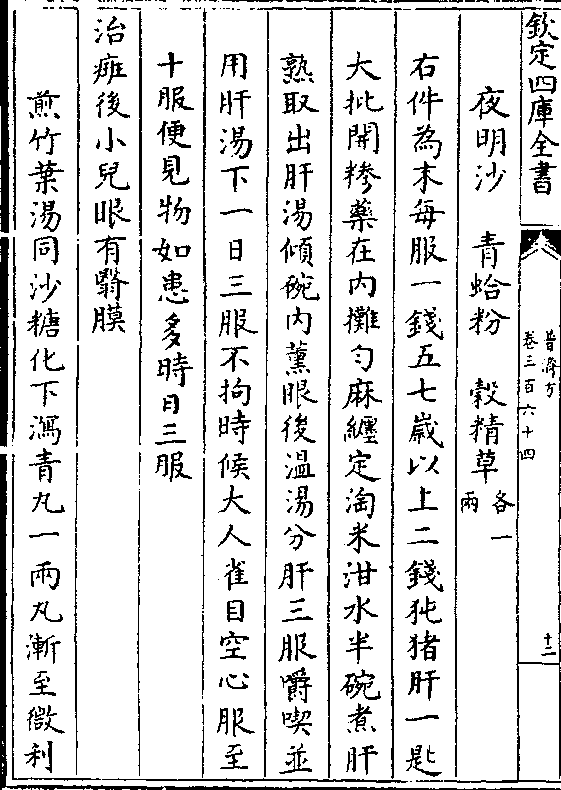 欽定四庫全書
普濟方
卷三百六十四
十二
夜明沙　青蛤粉　穀精草各一兩
右件為末每服一錢五七歲以上二錢㹠猪肝一匙
大批開糝藥在內攤勻麻纏定淘米泔水半碗煮肝
熟取出肝湯傾碗內薰眼後溫湯分肝三服嚼喫並
用肝湯下一日三服不拘時候大人雀目空心服至
十服便見物如患多時日三服
治疳後小兒眼有翳膜
煎竹葉湯同沙糖化下瀉青丸一兩丸漸至微利